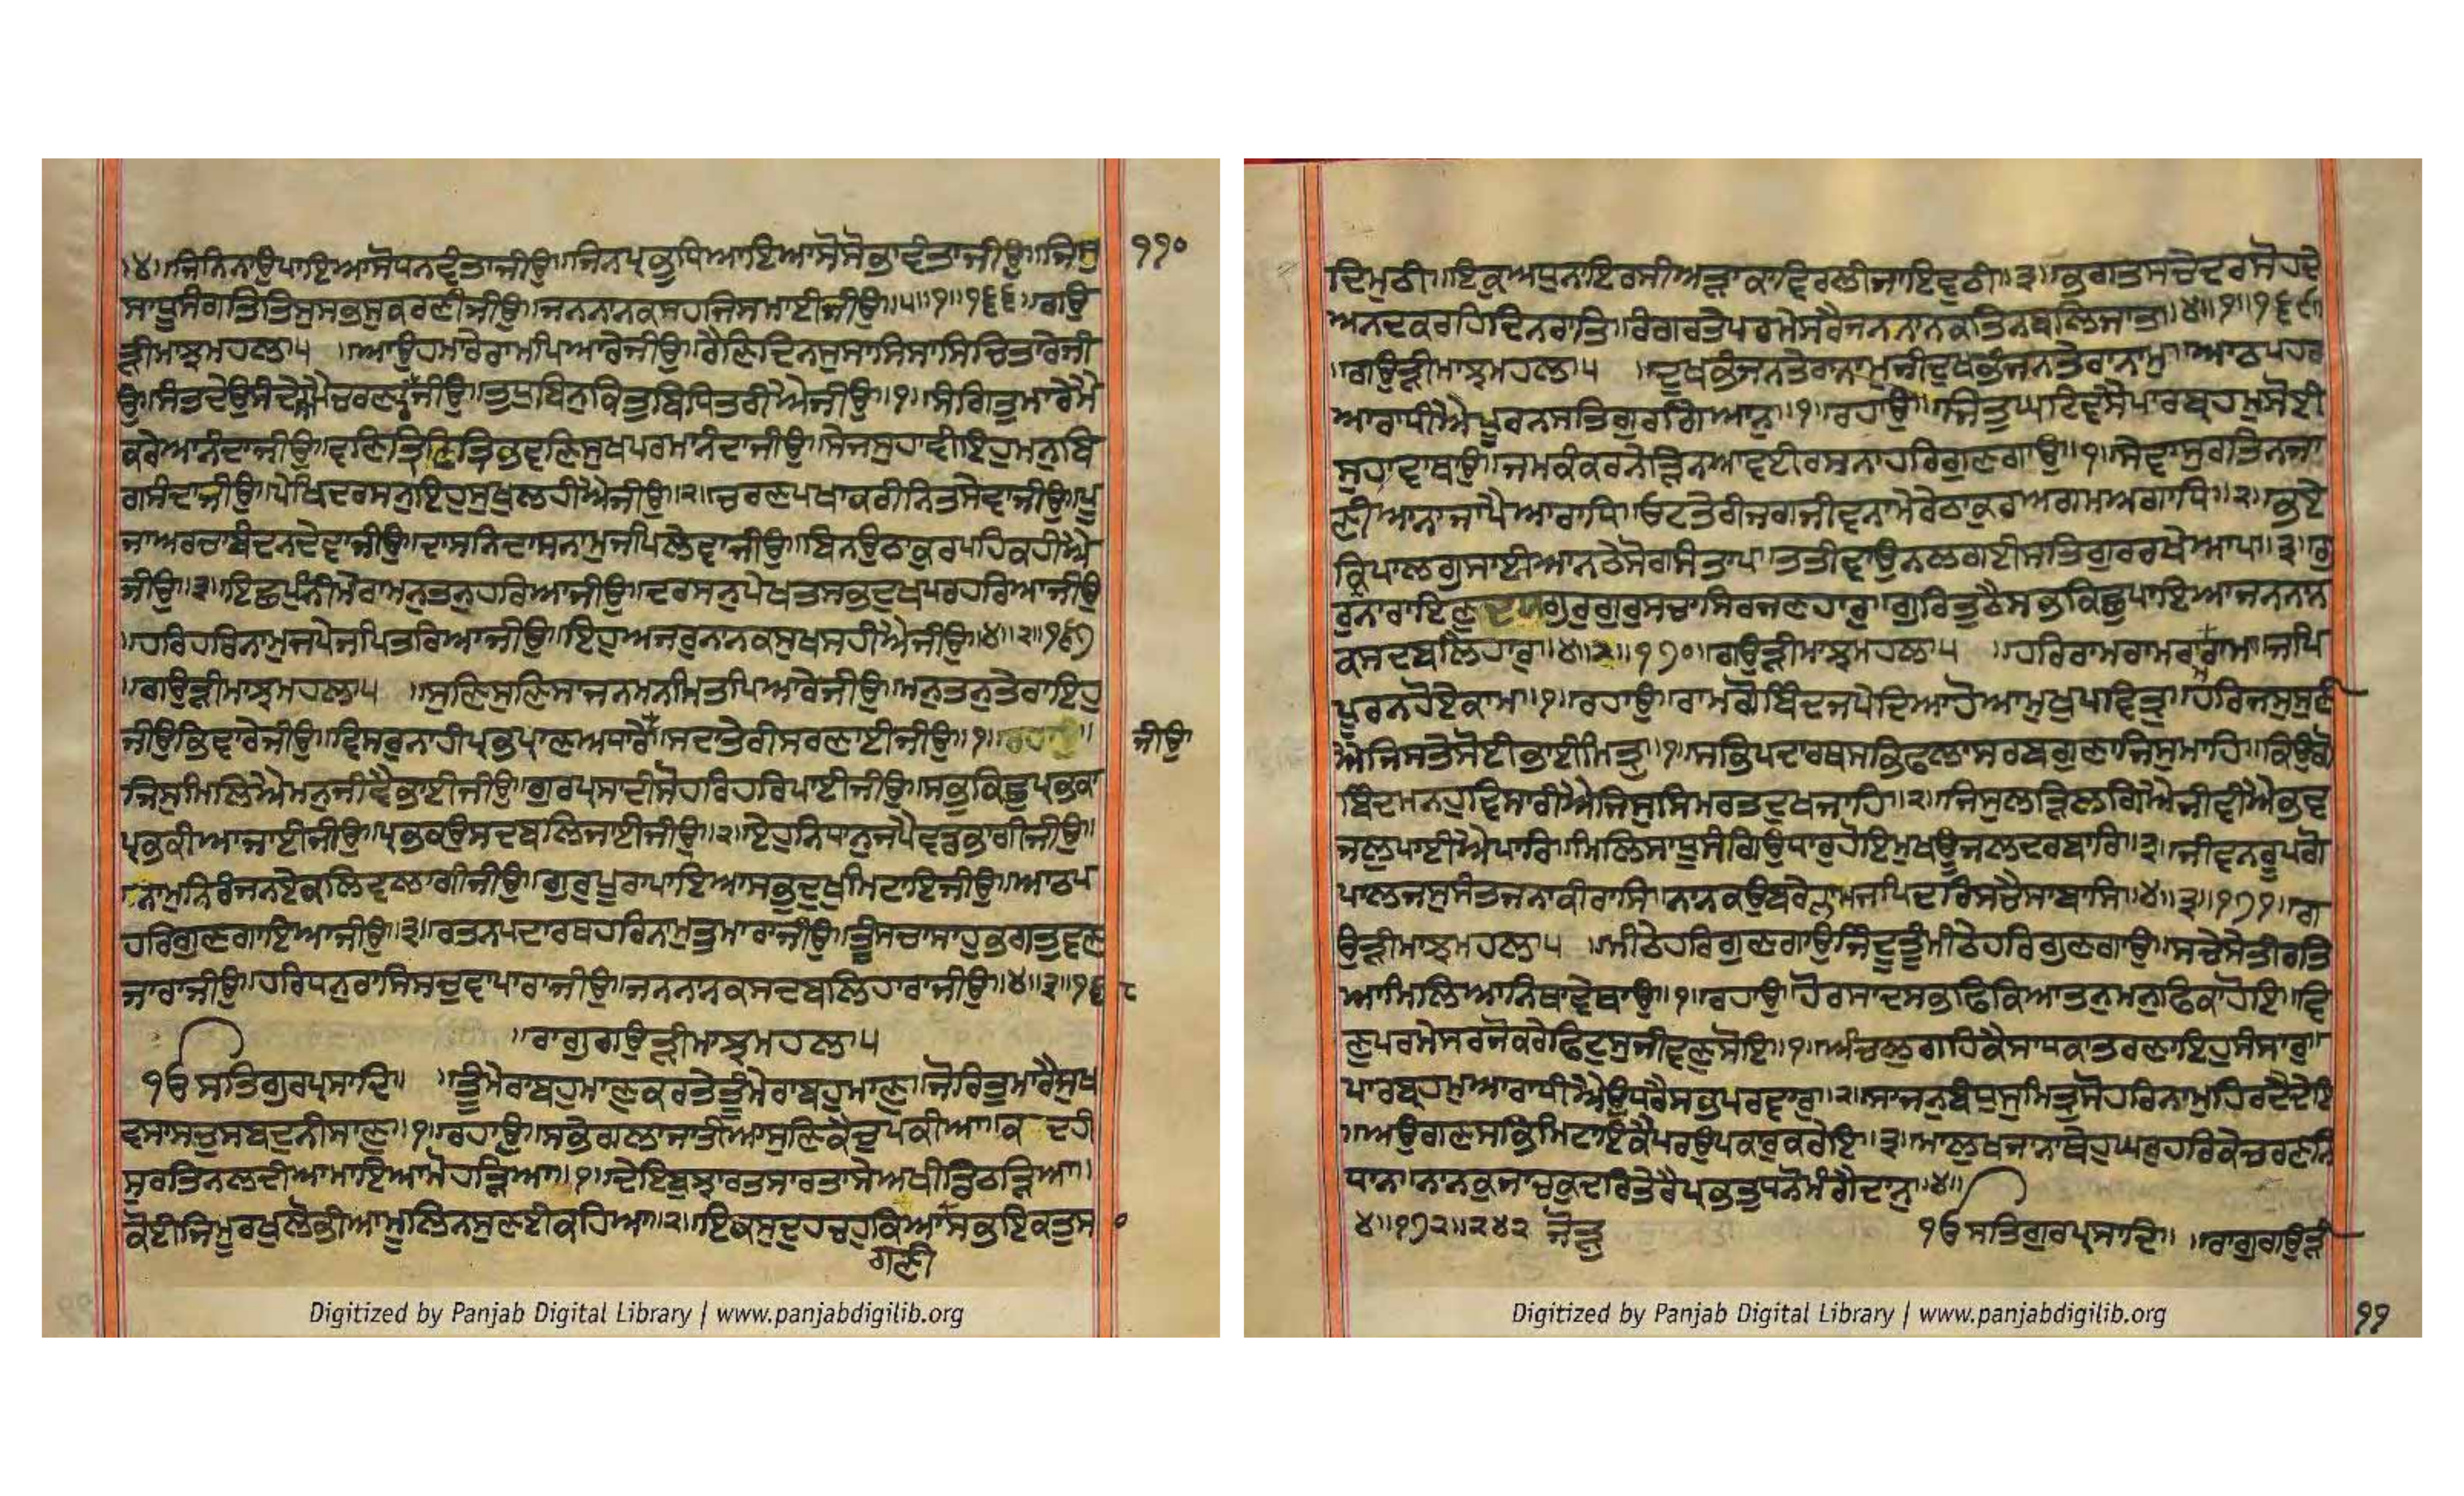 ੪॥ਜਿਨਿਨਾਉਪਾਇਆਸੋਧਨਵੰਤਾਜੀਉ॥ਜਿਨਪ੍ਰਭੁਧਿਆਇਆਸੋਸੋਭਾਵੰਤਾਜੀਉ॥ਜਿਸੁ
੧੧੦
ਸਾਧੂਸੰਗਤਿਤਿਸੁਸਭਸੁਕਰਣੀਜੀਉ॥ਜਨਨਾਨਕਸਹਜਿਸਮਾਈਜੀਉ॥੫॥੧॥੧੬੬॥ਗਉ
ੜੀਮਾਝਮਹਲਾ੫ ॥ਆਉਹਮਾਰੈਰਾਮਪਿਆਰੇਜੀਉ॥ਰੈਣਿਦਿਨਸੁਸਾਸਿਸਾਸਿਚਿਤਾਰੇਜੀ
ਉ॥ਸੰਤਦੇਉਸੰਦੇਸਾਪੈਚਰਣਾਰੇਜੀਉ॥ਤੁਧੁਬਿਨੁਕਿਤੁਬਿਧਿਤਰੀਐਜੀਉ॥੧॥ਸੰਗਿਤੁਮਾਰੇਮੈ
ਕਰੇਆਨੰਦਾਜੀਉ॥ਵਣਿਤਿਣਿਤ੍ਰਿਭਵਣਿਸੁਖਪਰਮਾਨੰਦਾਜੀਉ॥ਸੇਜਸੁਹਾਵੀਇਹੁਮਨੁਬਿ
ਗਸੰਦਾਜੀਉ॥ਪੇਖਿਦਰਸਨੁਇਹੁਸੁਖੁਲਹੀਐਜੀਉ॥੨॥ਚਰਣਪਖਾਰਿਕਰੀਨਿਤਸੇਵਾਜੀਉ॥ਪੂ
ਜਾਅਰਚਾਬੰਦਨਦੇਵਾਜੀਉ॥ਦਾਸਨਿਦਾਸੁਨਾਮੁਜਪਿਲੇਵਾਜੀਉ॥ਬਿਨਉਠਾਕੁਰਪਹਿਕਹੀਐ
ਜੀਉ॥੩॥ਇਛਪੁੰਨੀਮੇਰਾਮਨੁਤਨੁਹਰਿਆਜੀਉ॥ਦਰਸਨੁਪੇਖਤਸਭਦੁਖਪਰਹਰਿਆਜੀਉ
॥ਹਰਿਹਰਿਨਾਮੁਜਪੇਜਪਿਤਰਿਆਜੀਉ॥ਇਹੁਅਜਰੁਨਾਨਕਸੁਖਸਹੀਐਜੀਉ॥੪॥੨॥੧੬੭
॥ਗਉੜੀਮਾਝਮਹਲਾ੫ ॥ਸੁਣਿਸੁਣਿਸਾਜਨਮਨਮਿਤਪਿਆਰੇਜੀਉ॥ਮਨੁਤਨੁਤੇਰਾਇਹੁ
ਜੀਉਭਿਵਾਰੇਜੀਉ॥ਵਿਸਰੁਨਾਹੀਪ੍ਰਭਪ੍ਰਾਣਅਧਾਰੇ॥ਸਦਤੇਰੀਸਰਣਾਈਜੀਉ॥੧॥ਰਹਾਉ॥
ਜੀਉ
ਜਿਸੁਮਿਲਿਐਮਨੁਜੀਵੈਭਾਈਜੀਉ॥ਗੁਰਪ੍ਰਸਾਦੀਸੋਹਰਿਹਰਿਪਾਈਜੀਉ॥ਸਭਕਿਛੁਪ੍ਰਭਕਾ
ਪ੍ਰਭਕੀਆਜਾਈਜੀਉ॥ਪ੍ਰਭਕਉਸਦਬਲਿਜਾਈਜੀਉ॥੨॥ਏਹੁਨਿਧਾਨੁਜਪੈਵਡਭਾਗੀਜੀਉ॥
ਨਾਮੁਨਿਰੰਜਨਏਕਲਿਵਲਾਗੀਜੀਉ॥ਗੁਰੁਪੂਰਾਪਾਇਆਸਭੁਦੁਖੁਮਿਟਾਇਜੀਉ॥ਆਠਪ
ਹਰਿਗੁਣਗਾਇਆਜੀਉ॥੩॥ਰਤਨਪਦਾਰਥਹਰਿਨਾਮੁਤੁਮਾਰਾਜੀਉ॥ਤੂੰਸਚਾਸਾਹੁਭਗਤੁਵਣ
ਜਾਰਾਜੀਉ॥ਹਰਿਧਨੁਰਾਸਿਸਚੁਵਾਪਾਰਾਜੀਉ॥ਜਨਨਾਨਕਸਦਬਲਿਹਾਰਾਜੀਉ॥੪॥੩॥੧੬੮
॥ਰਾਗੁਗਉੜੀਮਾਝਮਹਲਾ੫
ੴਸਤਿਗੁਰਪ੍ਰਸਾਦਿ॥ ॥ਤੂੰਮੇਰਾਬਹੁਮਾਣੁਕਰਤੇਤੂੰਮੇਰਾਬਹੁਮਾਣੁ॥ਜੋਰਿਤੁਮਾਰੈਸੁਖਿ
ਵਸਾਸਚੁਸਬਦੁਨੀਸਾਣੁ॥੧॥ਰਹਾਉ॥ਸਭੇਗਲਾਜਾਤੀਆਸੁਣਿਕੈਚੁਪਕੀਆ॥ਕਦਹੀ
ਸੁਰਤਿਨਲਧੀਆਮਾਇਆਮੋਹੜਿਆ॥੧॥ਦੇਇਬੁਝਾਰਤਸਾਰਤਾਸੇਅਖੀਡਿਠੜਿਆ॥
ਕੋਈਜਿਮੂਰਖੁਲੋਭੀਆਮੂਲਿਨਸੁਣਈਕਹਿਆ॥੨॥ਇਕਸੁਦੁਹੁਚਹੁਕਿਆਸਭਇਕਤੁਸ
ਗਣੀ
ਦਿਮੁਠੀ॥ਇਕੁਅਧੁਨਾਇਰਸੀਅੜਾਕਾਵਿਰਲੀਜਾਇਵੁਠੀ॥੩॥ਭਗਤਸਚੇਦਰਸੋਹਦੇ
ਅਨਦਕਰਹਿਦਿਨਰਾਤਿ॥ਰੰਗਰਤੇਪਰਮੇਸਰੈਜਨਨਾਨਕਤਿਨਬਲਿਜਾਤ॥੪॥੧॥੧੬੯
॥ਗਉੜੀਮਾਝਮਹਲਾ੫ ॥ਦੁਖਭੰਜਨੁਤੇਰਾਨਾਮੁਜੀਦੁਖਭੰਜਨੁਤੇਰਾਨਾਮੁ॥ਆਠਪਹਰ
ਆਰਾਧੀਐਪੂਰਨਸਤਿਗੁਰਗਿਆਨੁ॥੧॥ਰਹਾਉ॥ਜਿਤੁਘਟਿਵਸੈਪਾਰਬ੍ਰਹਮੁਸੋਈ
ਸੁਹਾਵਾਥਾਉ॥ਜਮਕੰਕਰੁਨੇੜਿਨਆਵਈਰਸਨਾਹਰਿਗੁਣਗਾਉ॥੧॥ਸੇਵਾਸੁਰਤਿਨਜਾ
ਣੀਆਨਾਜਾਪੈਆਰਾਧਿ॥ਓਟਤੇਰੀਜਗਜੀਵਨਾਮੇਰੇਠਾਕੁਰਅਗਮਅਗਾਧਿ॥੨॥ਭਏ
ਕ੍ਰਿਪਾਲਗੁਸਾਈਆਨਠੇਸੋਗਸੰਤਾਪ॥ਤਤੀਵਾਉਨਲਗਈਸਤਿਗੁਰਰਖੇਆਪਿ॥੩॥ਗੁ
ਰੁਨਾਰਾਇਣੁਦਯੁਗੁਰੁਗੁਰੁਸਚਾਸਿਰਜਣਹਾਰੁ॥ਗੁਰਿਤੁਠੈਸਭਕਿਛੁਪਾਇਆਜਨਨਾਨ
ਕਸਦਬਲਿਹਾਰ॥੪॥੨॥੧੭੦॥ਗਉੜੀਮਾਝਮਹਲਾ੫ ॥ਹਰਿਰਾਮਰਾਮਰਾਮਰਾਮਾ॥ਜਪਿ
ਪੂਰਨਹੋਏਕਾਮਾ॥੧॥ਰਹਾਉ॥ਰਾਮਗੋਬਿੰਦਜਪੇਦਿਆਹੋਆਮੁਖੁਪਵਿਤ੍ਰੁ॥ਹਰਿਜਸੁਸੁਣੀ
ਐਜਿਸਤੇਸੋਈਭਾਈਮਿਤ੍ਰੁ॥੧॥ਸਭਿਪਦਾਰਥਸਭਿਫਲਾਸਰਬਗੁਣਾਜਿਸੁਮਾਹਿ॥ਕਿਉਗੋ
ਬਿੰਦਮਨਹੁਵਿਸਾਰੀਐਜਿਸੁਸਿਮਰਤਦੁਖਜਾਹਿ॥੨॥ਜਿਸੁਲੜਿਲਗਿਐਜੀਵੀਐਭਵ
ਜਲੁਪਾਈਐਪਾਰਿ॥ਮਿਲਿਸਾਧੂਸੰਗਿਉਧਾਰੁਹੋਇਮੁਖਊਜਲਦਰਬਾਰਿ॥੩॥ਜੀਵਨਰੂਪਗੋ
ਪਾਲਜਸੁਸੰਤਜਨਾਕੀਰਾਸਿ॥ਨਾਨਕਉਬਰੇਨਾਮੁਜਪਿਦਰਿਸਚੈਸਾਬਾਸਿ॥੪॥੩॥੧੭੧॥ਗ
ਉੜੀਮਾਝਮਹਲਾ੫ ॥ਮੀਠੇਹਰਿਗੁਣਗਾਉਜਿੰਦੂਤੂੰਮੀਠੇਹਰਿਗੁਣਗਾਉ॥ਸਚੇਸੇਤੀਰਤਿ
ਆਮਿਲਿਆਨਿਥਾਵੇਥਾਉ॥੧॥ਰਹਾਉ॥ਹੋਰਿਸਾਦਸਭਿਫਿਕਿਆਤਨੁਮਨੁਫਿਕਾਹੋਇ॥ਵਿ
ਣੁਪਰਮੇਸਰਜੋਕਰੇਫਿਟੁਸੁਜੀਵਣੁਸੋਇ॥੧॥ਅੰਚਲੁਗਹਿਕੈਸਾਧਕਾਤਰਣਾਇਹੁਸੰਸਾਰੁ॥
ਪਾਰਬ੍ਰਹਮੁਆਰਾਧੀਐਉਧਰੈਸਭਪਰਵਾਰੁ॥੨॥ਸਾਜਨੁਬੰਧੁਸੁਮਿਤ੍ਰੁਸੋਹਰਿਨਾਮੁਹਿਰਦੈਦੇਇ
॥ਅਉਗਣਸਭਿਮਿਟਾਇਕੈਪਰਉਪਕਾਰੁਕਰੇਇ॥੩॥ਮਾਲੁਖਜਾਨਾਥੇਹੁਘਰੁਹਰਿਕੇਚਰਣਨਿ
ਧਾਨ॥ਨਾਨਕੁਜਾਚਕੁਦਰਿਤੇਰੈਪ੍ਰਭਤੁਧਨੋਮੰਗੈਦਾਨੁ॥੪॥
੪॥੧੭੨॥੨੪੨ ਜੋੜੁ ੴਸਤਿਗੁਰਪ੍ਰਸਾਦਿ॥ ॥ਰਾਗੁਗਉੜੀ
Digitized by Panjab Digital Library | www.panjabdigilib.org
Digitized by Panjab Digital Library | www.panjabdigilib.org
੧੧